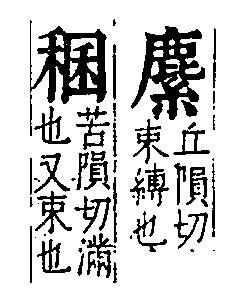 丘隕切
束縛也
稛
苦隕切滿
也又束也